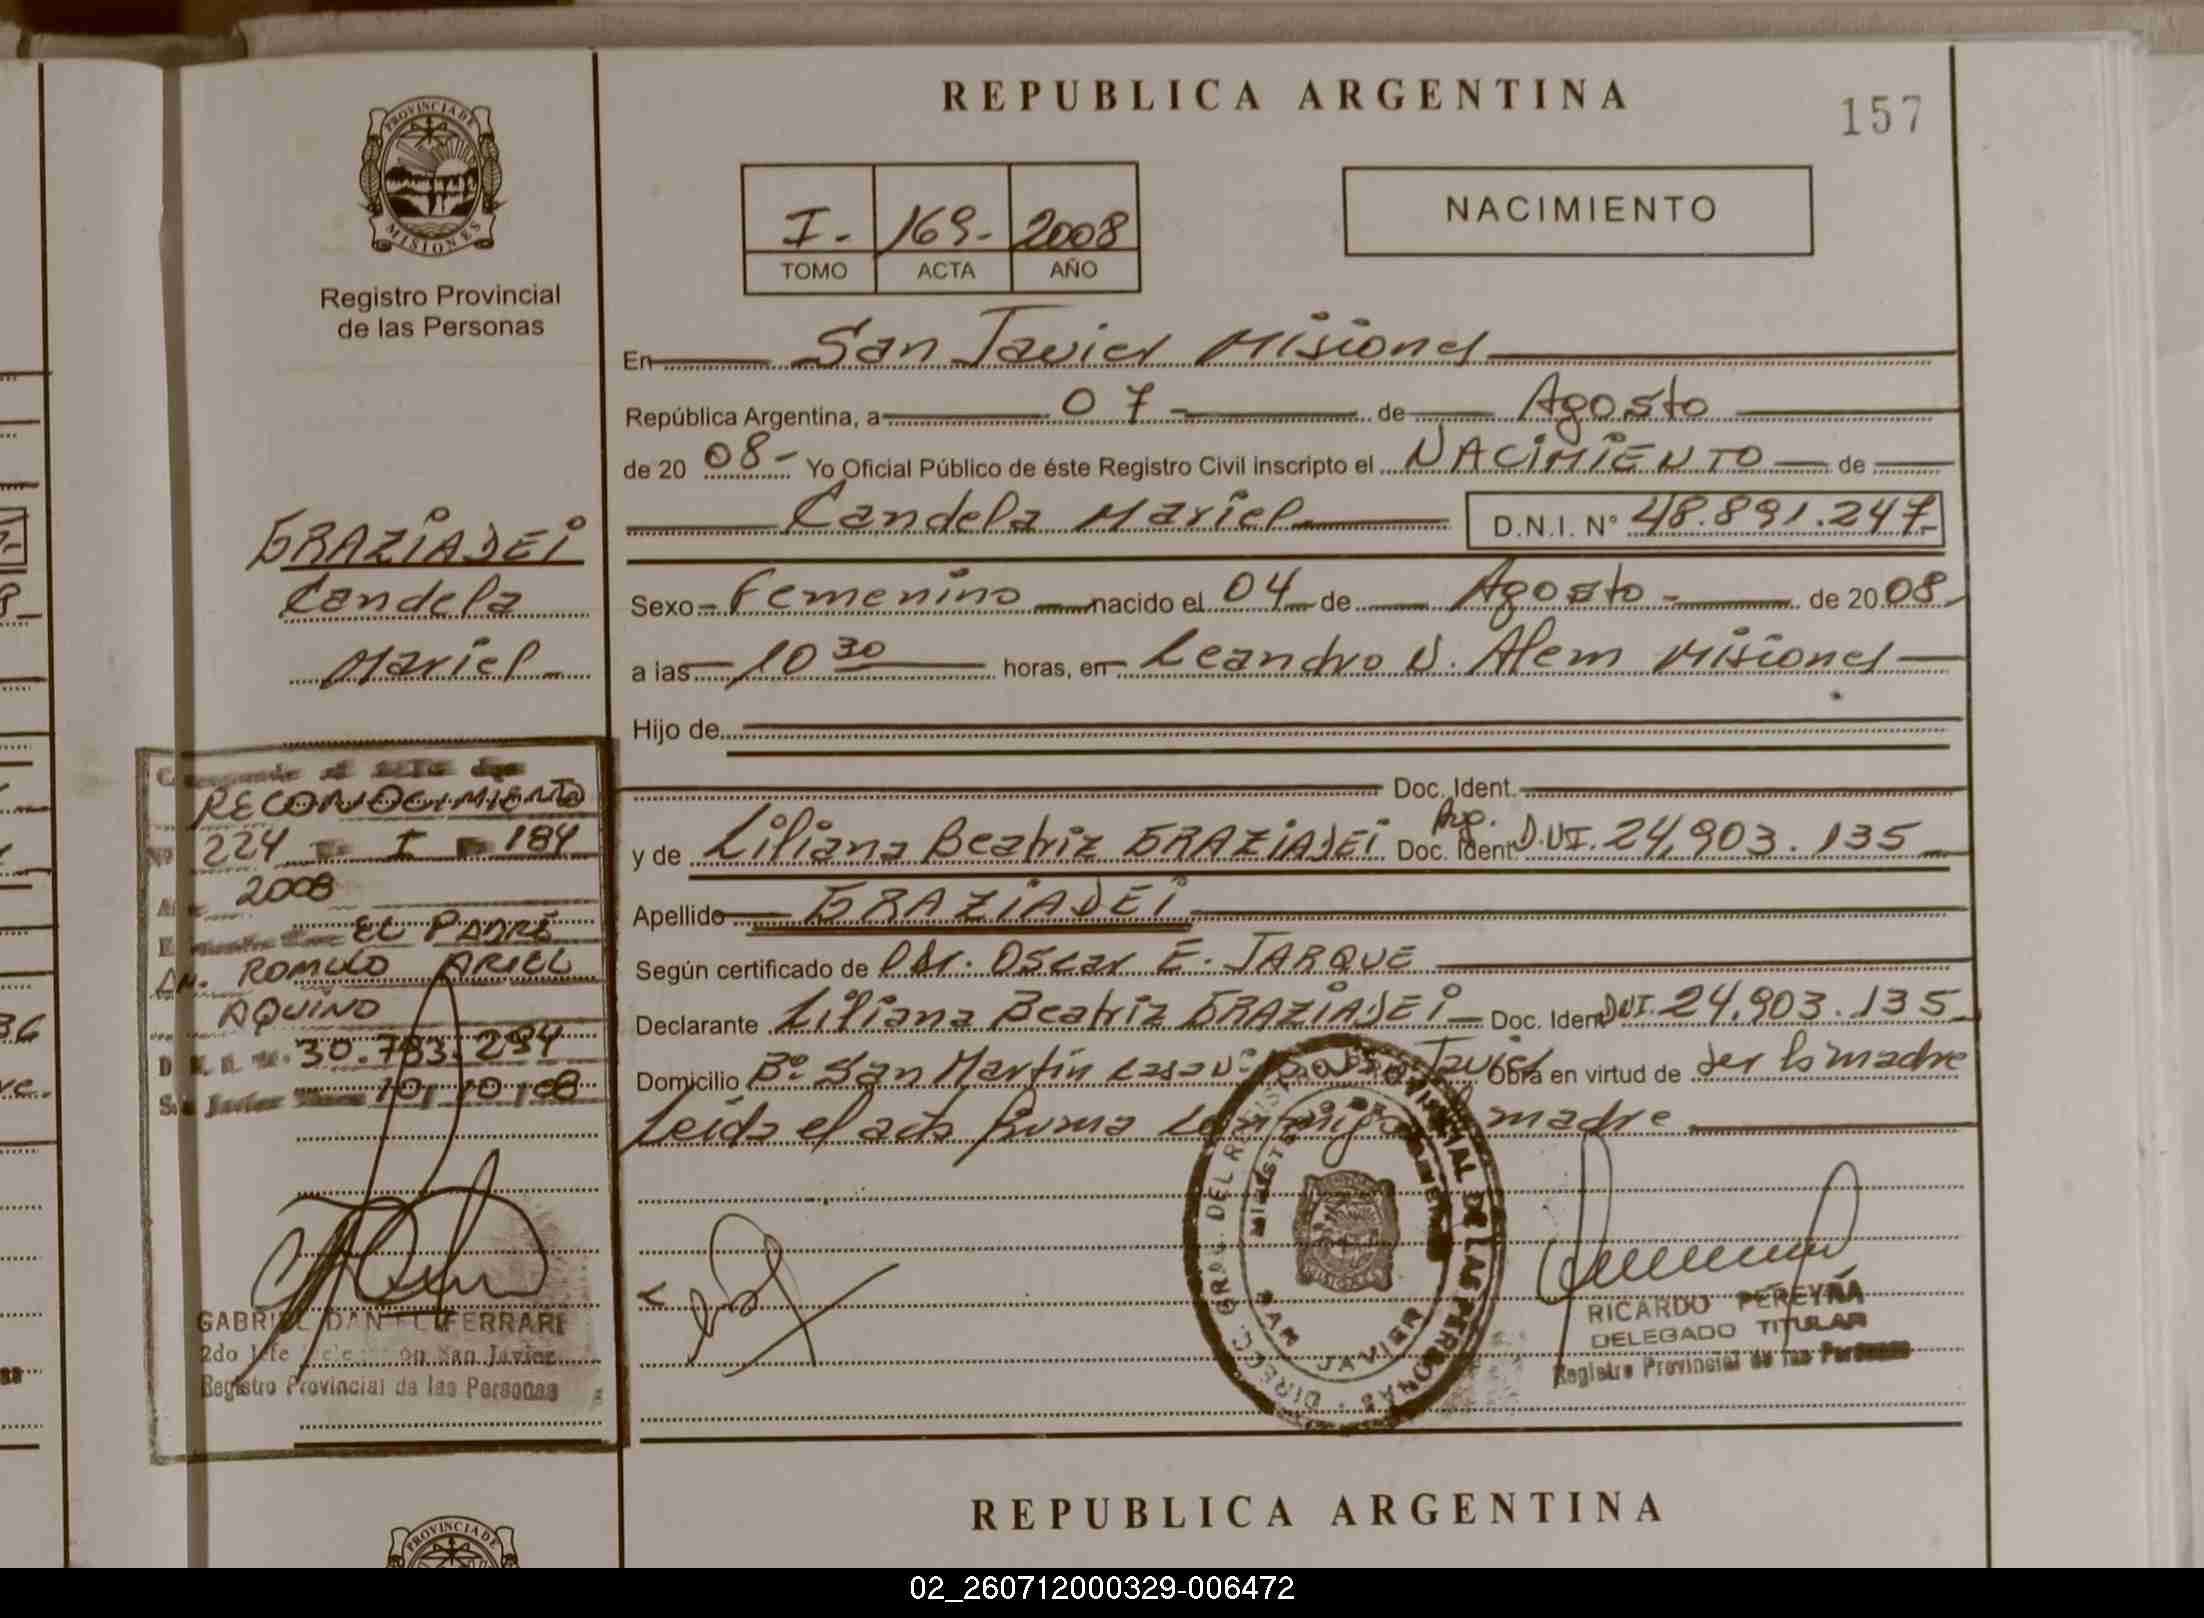 REPUBLICA ARGENTINA
157
PROVINCIA DE
MISIONES
Registro Provincial
de las Personas
I - 169 - 2008
TOMO ACTA AÑO
NACIMIENTO
En San Javier Misiones
República Argentina, a 07 - de Agosto
de 20 08 - Yo Oficial Público de éste Registro Civil inscripto el NACIMIENTO de
Candela Mariel D.N.I. N° 48.891.247-
Sexo - Femenino - nacido el 04 de Agosto - de 20 08 -
a las 10 30 horas, en Leandro N. Alem Misiones
Hijo de
Doc. Ident.
Arg.
y de Liliana Beatriz GRAZIADEI Doc. Ident. D.U.I. 24,903.135
Apellido GRAZIADEI
Según certificado de Dr. Oscar E. JARQUE
Declarante Liliana Beatriz GRAZIADEI Doc. Ident DUI. 24,903.135
Domicilio B°. San Martín casa Javier Obra en virtud de ser la madre
Leída el acta firma conmigo madre
GRAZIADEI
Candela
Mariel
RECONOCIMIENTO
N° 224 I 184
2008
EL PADRE
ROMULO ARIEL
AQUINO
30.783.294
San Javier 10/10/08
GABRIEL DANIEL FERRARI
2do Jefe San Javier
Registro Provincial de las Personas
DIRECC. GRAL. DEL REGISTRO PROVINCIAL DE LAS PERSONAS
SAN JAVIER
RICARDO PEREYRA
DELEGADO TITULAR
Registro Provincial de las Personas
REPUBLICA ARGENTINA
PROVINCIA DE
02_260712000329-006472